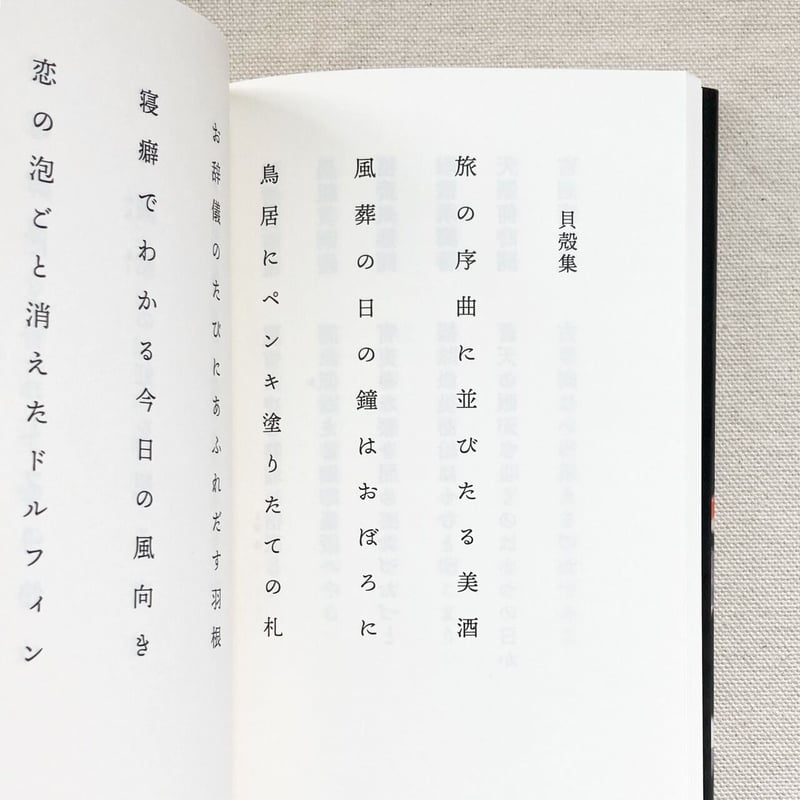 貝殻集
旅の序曲に並びたる美酒
風葬の日の鐘はおぼろに
鳥居にペンキ塗りたての札
お辞儀のたびにあふれだす羽根
寝癖でわかる今日の風向き
恋の泡ごと消えたドルフィン